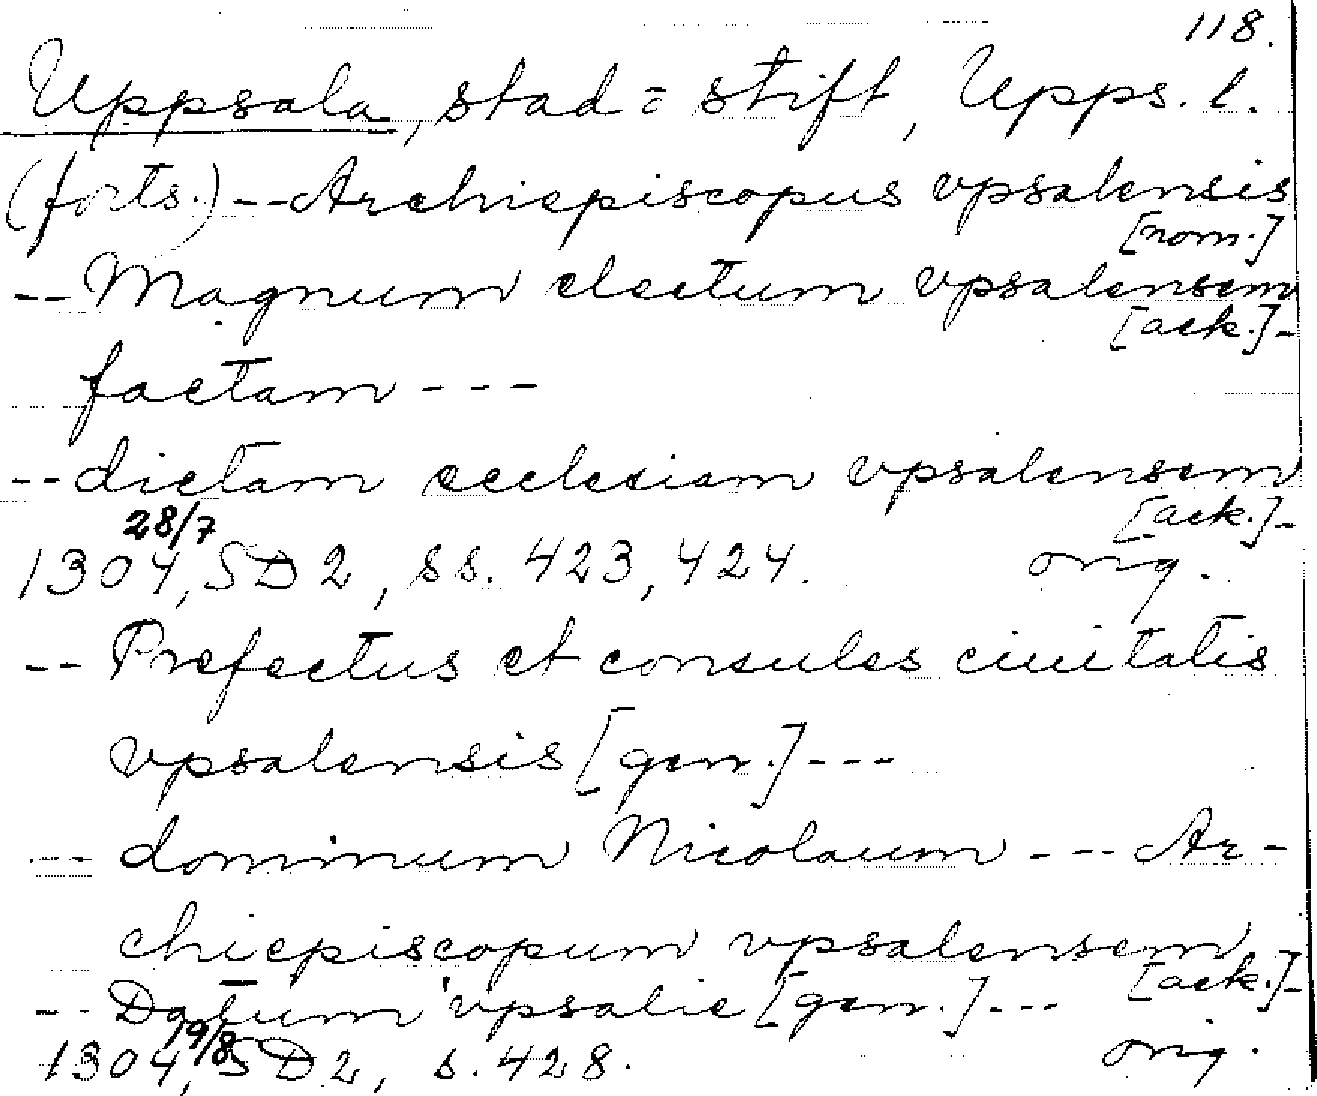 118.
Uppsala, stad = stift, Upps. l.
(forts.) -- Archiepiscopus vpsalensis
[nom.]
-- Magnum electum vpsalensem
[ack.] -
factam ---
-- dictam ecclesiam vpsalensem
[ack.] -
28/7
1304, SD 2, ss. 423, 424. orig.
-- Prefectus et consules ciuitatis
vpsalensis [gen.] ---
-- dominum Nicolaum --- Ar-
chiepiscopum vpsalensem
[ack.] -
-- Datum vpsalie [gen.] ---
19/8
1304, SD 2, s. 428. orig.